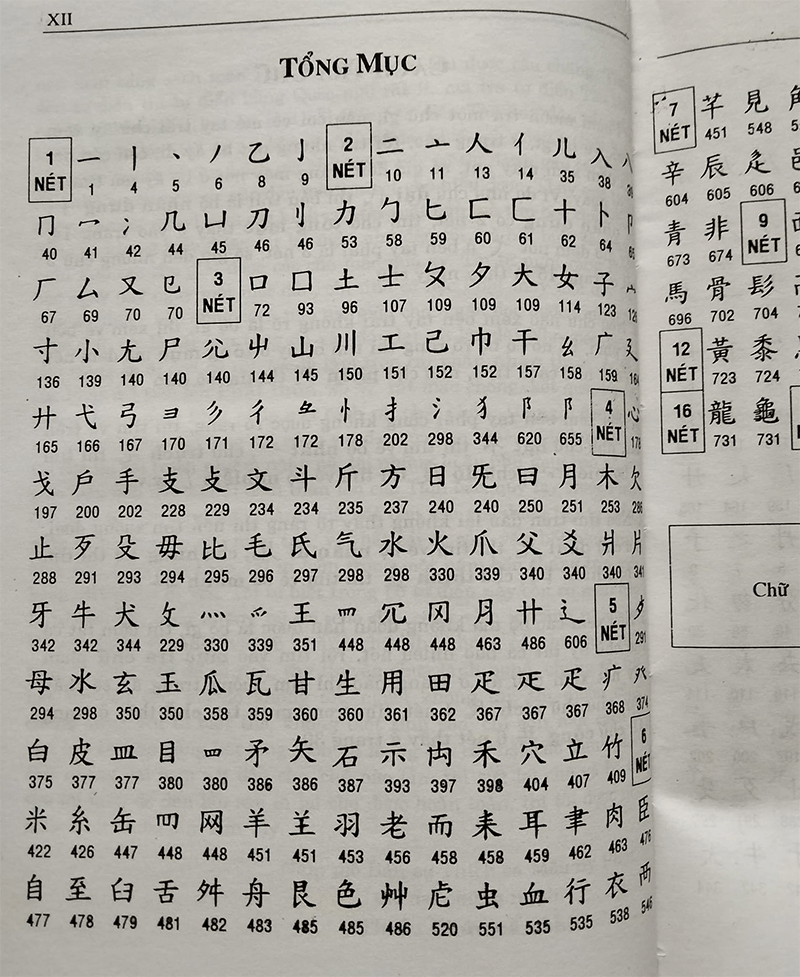 XII
TỔNG MỤC
1 NÉT 一 丨 丶 丿 乙 亅 2 NÉT 二 亠 人 亻 儿 入 八
1 4 5 6 8 9 10 11 13 14 35 38
冂 冖 冫 几 凵 刀 刂 力 勹 匕 匚 匸 十 卜 卩
40 41 42 44 45 46 46 53 58 59 60 61 62 64
厂 厶 又 㔾 3 NÉT 口 囗 土 士 夂 夕 大 女 子 宀
67 69 70 70 72 93 96 107 109 109 109 114 123
寸 小 尢 尸 尣 屮 山 川 工 己 巾 干 幺 广 廴
136 139 140 140 140 144 145 150 151 152 152 157 158 159
廾 弋 弓 彐 彡 彳 忄 扌 氵 犭 阝 阝 4 NÉT 心
165 166 167 170 171 172 172 178 202 298 344 620 655 178
戈 戶 手 支 攴 文 斗 斤 方 日 旡 曰 月 木 欠
197 200 202 228 229 234 234 235 237 240 240 250 251 253 286
止 歹 殳 毋 比 毛 氏 气 水 火 爪 父 爻 爿 片
288 291 293 294 295 296 297 298 298 330 339 340 340 340 341
牙 牛 犬 攵 灬 爫 王 罒 冗 冈 月 艹 辶 5 NÉT 歺
342 342 344 229 330 339 351 448 448 448 463 486 606 291
母 水 玄 玉 瓜 瓦 甘 生 用 田 疋 疋 疒 癶
294 298 350 350 358 359 360 360 361 362 367 367 367 368 374
白 皮 皿 目 罒 矛 矢 石 示 禸 禾 穴 立 竹 6 NÉT
375 377 377 380 380 386 386 387 393 397 398 404 407 409
米 糸 缶 网 羊 羽 老 而 耒 耳 聿 肉 臣
422 426 447 448 448 451 451 453 456 458 458 459 462 463 476
自 至 臼 舌 舛 舟 艮 色 艸 虍 虫 血 行 衣 襾
477 478 479 481 482 483 485 485 486 520 551 535 535 538 546
7 NÉT 芊 見
451 548
辛 辰 辵
604 605 606
青 非 9 NÉT
673 674
馬 骨 髟
696 702 704
12 NÉT 黃 黍
723 724
16 NÉT 龍 龜
731 731
Chữ